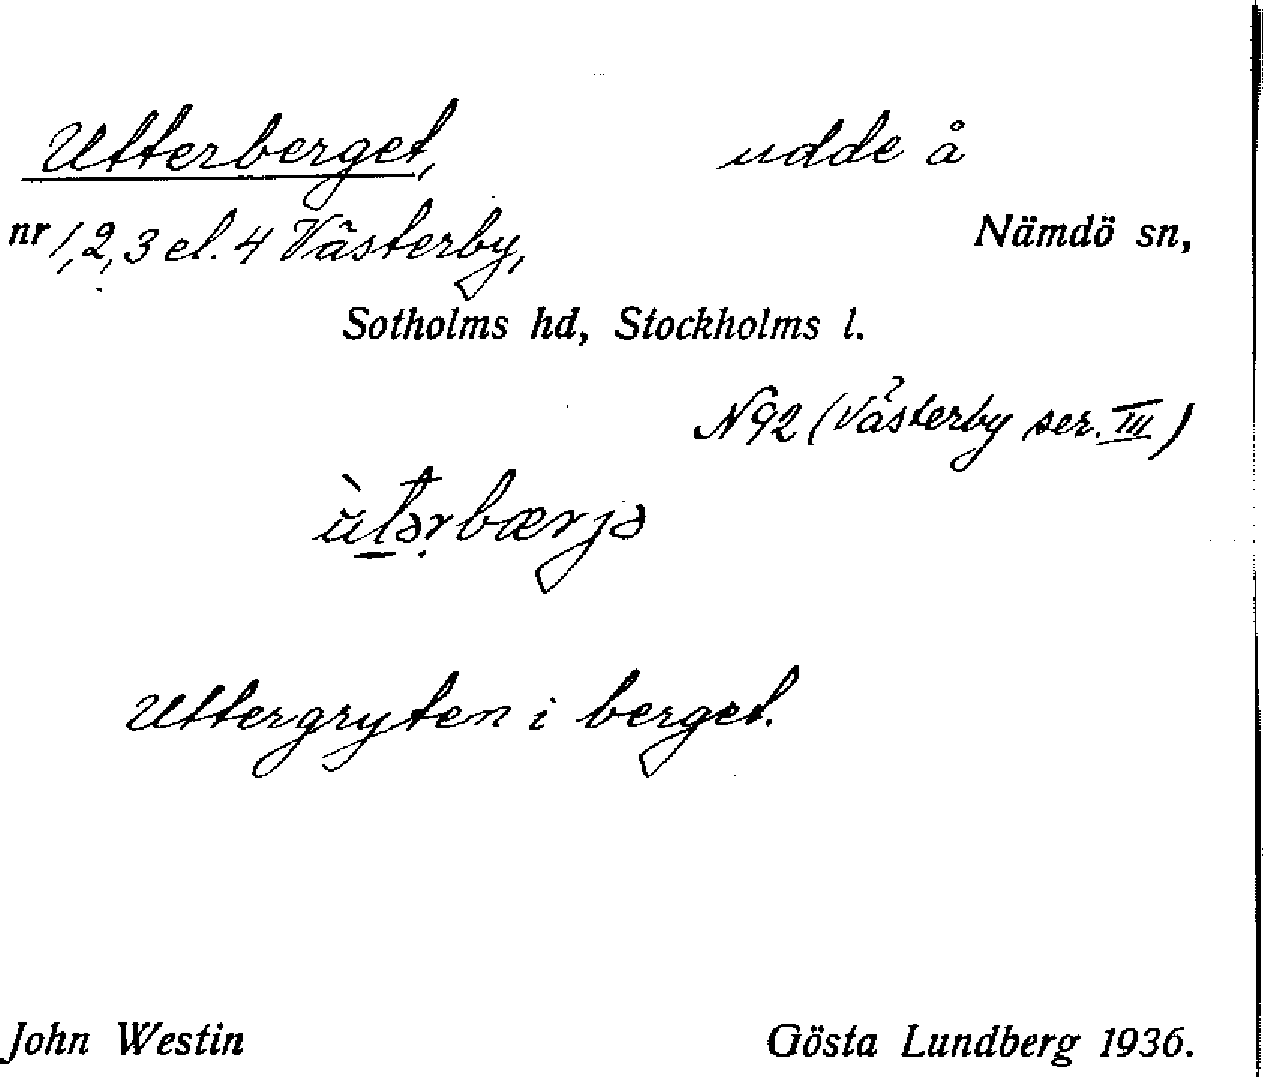 Utterberget, udde å
nr 1, 2, 3 el. 4 Västerby, Nämdö sn,
Sotholms hd, Stockholms l.
N92 (Västerby ser. III)
Uttergryten i berget.
John Westin Gösta Lundberg 1936.